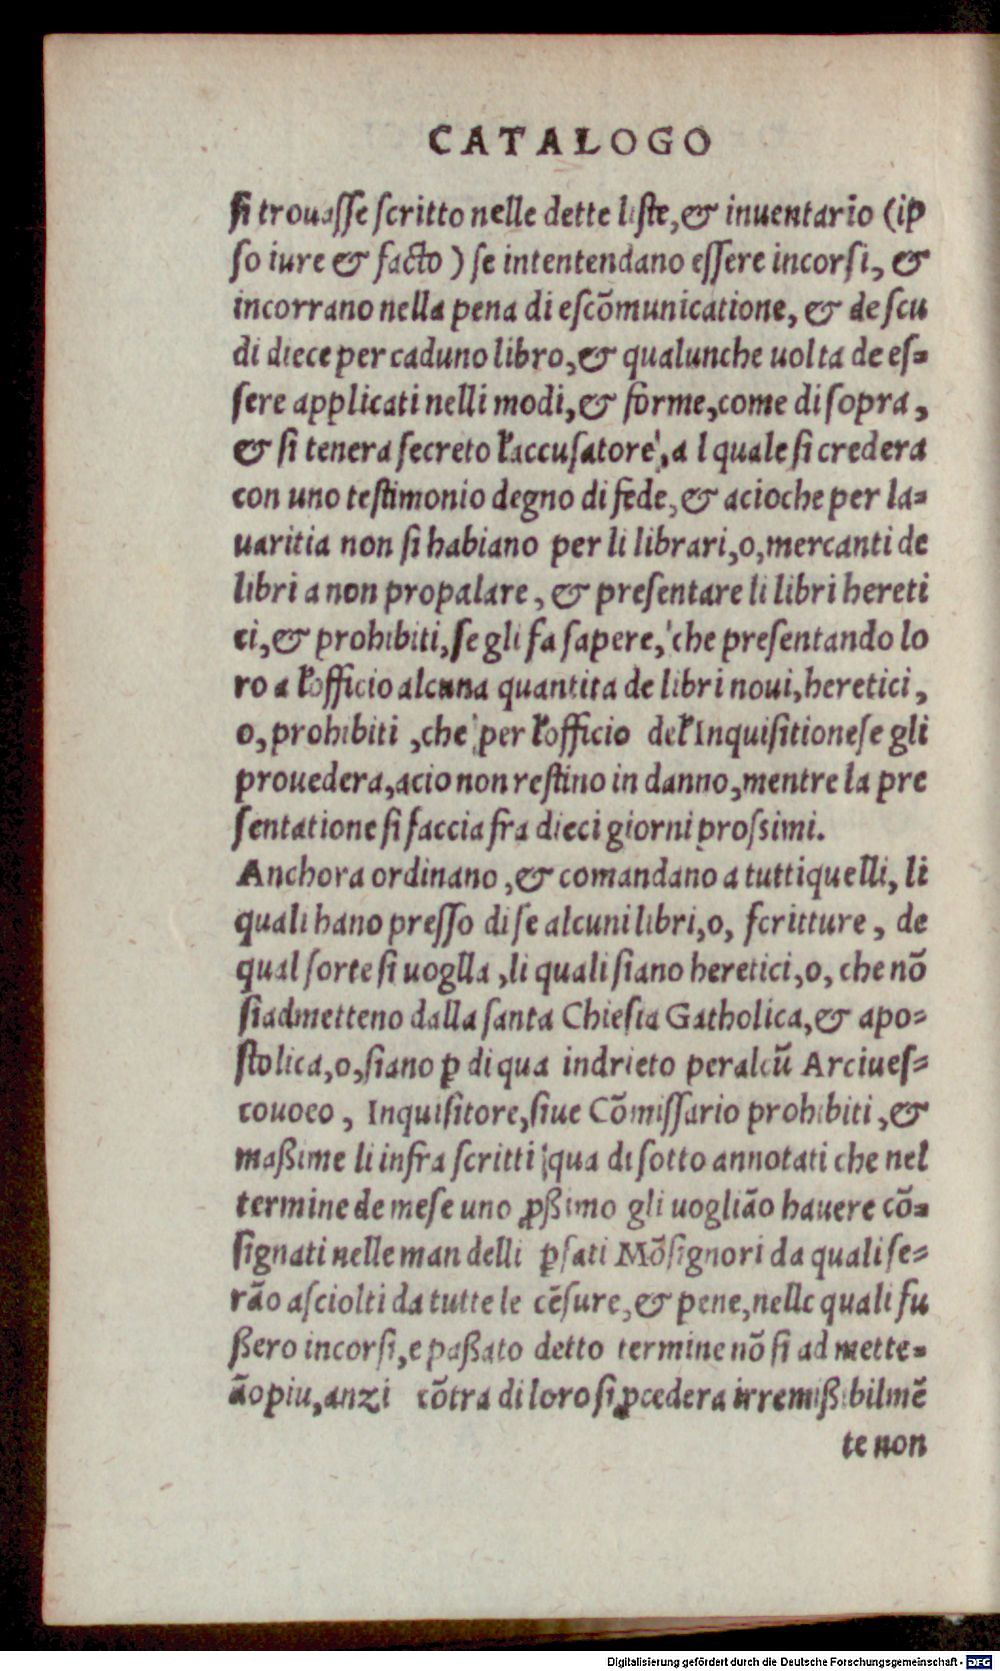 CATALOGO
ſi trouaſſe ſcritto nelle dette liſte, & inuentario (ip
ſo iure & facto ) ſe intentendano eſſere incorſi, &
incorrano nella pena di eſcõmunicatione, & de ſcu
di diece per caduno libro, & qualunche uolta de eſ-
ſere applicati nelli modi, & forme, come di ſopra,
& ſi tenera ſecreto l'accuſatore, a l quale ſi credera
con uno teſtimonio degno di fede, & acioche per la-
uaritia non ſi habiano per li librari, o, mercanti de
libri a non propalare, & preſentare li libri hereti
ci, & prohibiti, ſe gli fa ſapere, che preſentando lo
ro a l'officio alcuna quantita de libri noui, heretici,
o, prohibiti , che per l'officio del'Inquiſitione ſe gli
prouedera, acio non reſtino in danno, mentre la pre
ſentatione ſi faccia fra dieci giorni proſsimi.
Anchora ordinano , & comandano a tutti quelli, li
quali hano preſſo di ſe alcuni libri, o, ſcritture, de
qual ſorte ſi uoglla , li quali ſiano heretici, o, che nõ
ſiadmetteno dalla ſanta Chieſia Gatholica, & apo-
ſtolica, o, ſiano ꝑ di qua indrieto per alcũ Arciueſ-
couoeo, Inquiſitore, ſiue Cõmiſſario prohibiti , &
maßime li infra ſcritti qua di ſotto annotati che nel
termine de meſe uno ꝓßimo gli uoglião hauere cõ-
ſignati nelle man delli ꝑſati Mõſignori da quali ſe-
rão aſciolti da tutte le cẽſure, & pene, nelle quali fu
ßero incorſi, e paßato detto termine nõ ſi ad mette-
ão piu, anzi cõtra di loro ſi ꝓcedera irremißibilmẽ
te non
Digitalisierung gefördert durch die Deutsche Forschungsgemeinschaft - DFG